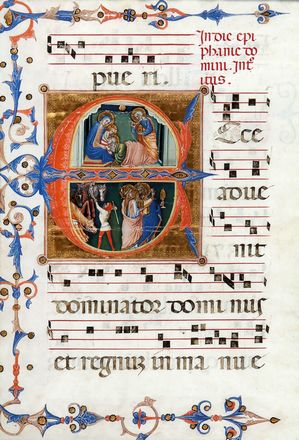 In die epi
phanie do
mini. Int
itus.
pue ri.
E Cce
adue
nit
dominator domi nus
et regnuz in ma nu e